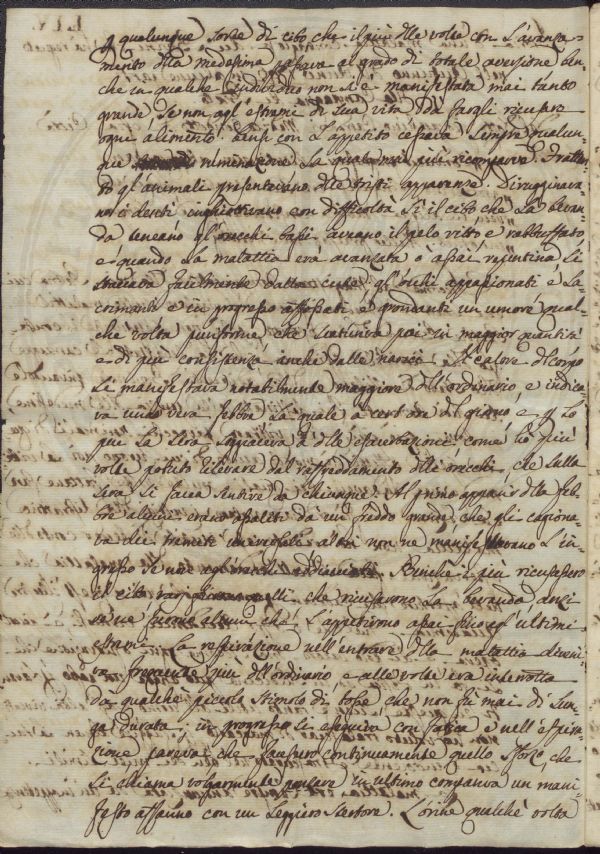 qualunque sorte di cibo che il più delle volte con l'avanza-
mento della medesima passava al grado di totale aversione ben-
che in qualche Individuo non si è manifestata mai tanto
grande se non agl'estremi di sua vita da fargli ricusare
ogni alimento. Bensi con l'appetito cessava sempre qualun-
que ruminazione la quale mai più ricompariva. Frattan-
to gl'animali presentavano delle tristi apparenze. Dirugginava-
no i denti inghiottivano con difficoltà sì il cibo che la bevan-
da teneano gl'orecchi bassi aveano il pelo ritto e rabbuffato,
e quando la malattia era avanzata o assai repentina si
staccava facilmente dalla cute; gl'occhi appassionati e la
crimanti e in progresso affossati, e grondanti un umore qual-
che volta puriforme che scaturiva poi in maggior quantità
e di più consistenza anche dalle narici. Il calore del corpo
si manifestava notabilmente maggiore dell'ordinario, e indica-
va una vera febbre la quale a cert'ore del giorno, e p lo
più la sera soggiaceva a delle esacerbazioni come ho più
volte potuto rilevare dal raffreddamento delle orecchi, che sulla
sera si facea sentire da chiunque. Al primo apparir della feb-
bre alcuni erano assaliti da un freddo grande, che gli cagiona-
va dei tremiti universali altri non ne manifestavano l'in-
gresso se non cogl'orecchi addiacciati. Benche i più ricusassero
il cibo rari quelli che ricusarono la bevanda, anzi
ve ne furono alcuni che l'appetirono assai fino agl'ultimi
estremi. La respirazione nell'entrare della malattia diveni-
va frequente più dell'ordinario e alle volte era interrotta
da qualche piccolo stimolo di tosse che non fù mai di lun-
ga durata; in progresso si eseguiva con fatica e nell'espira-
zione pareva che facessero continuamente quello sforzo che
si chiama volgarmente ponzare in ultimo compariva un mani-
festo affanno con un leggiero stertore. L'orine qualche volta